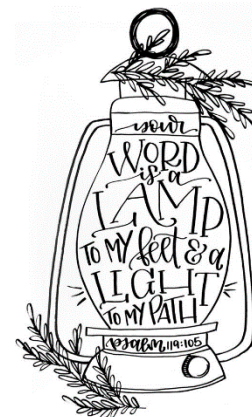 your
WORD
is a
LAMP
TO MY feet & a
LIGHT
TO MY PATH
psalm 119:105